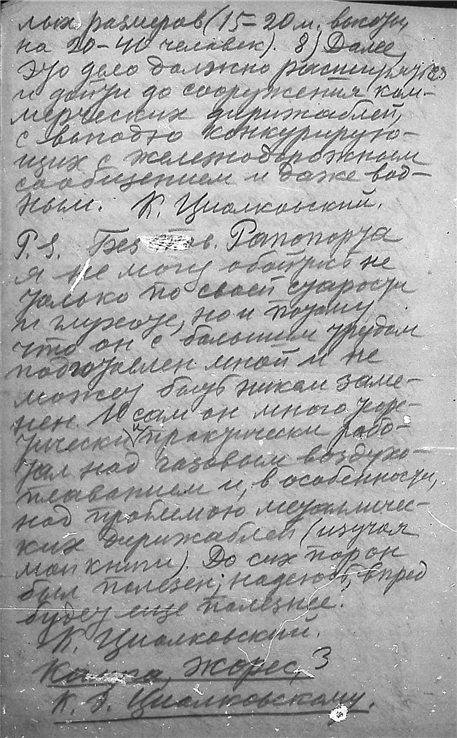 лых размеров (15–20 м. высоты,
на 20–40 человек). 8) Далее,
это дело должно расширяться
и дойти до сооружения ком-
мерческих дирижаблей,
с выгодою конкурирую-
щих с железнодорожным
сообщением и даже вод-
ным. К. Циолковский.
P.S. Без тов. Рапопорта
я не могу обойтись не
только по своей старости
и глухоте, но и потому
что он с большим трудом
подготовлен мной и не
может быть никем заме-
нен. И сам он много теоре-
тически и практически рабо-
тал над газовым воздухо-
плаванием и, в особенности,
над проблемою металличес-
ких дирижаблей (изучая
мои книги). До сих пор он
был полезен; надеюсь, впред
будет еще полезнее.
К. Циолковский.
Калуга, Жорес, 3
К. Э. Циолковскому.